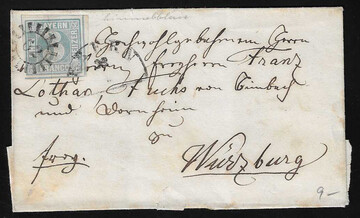 BAYERN
Hochwohlgebohrnem Herrn
Herrn Freyherrn Franz
Lothar Fuchs von Bimbach
und Dornheim
zu
frey.
Würzburg
9-